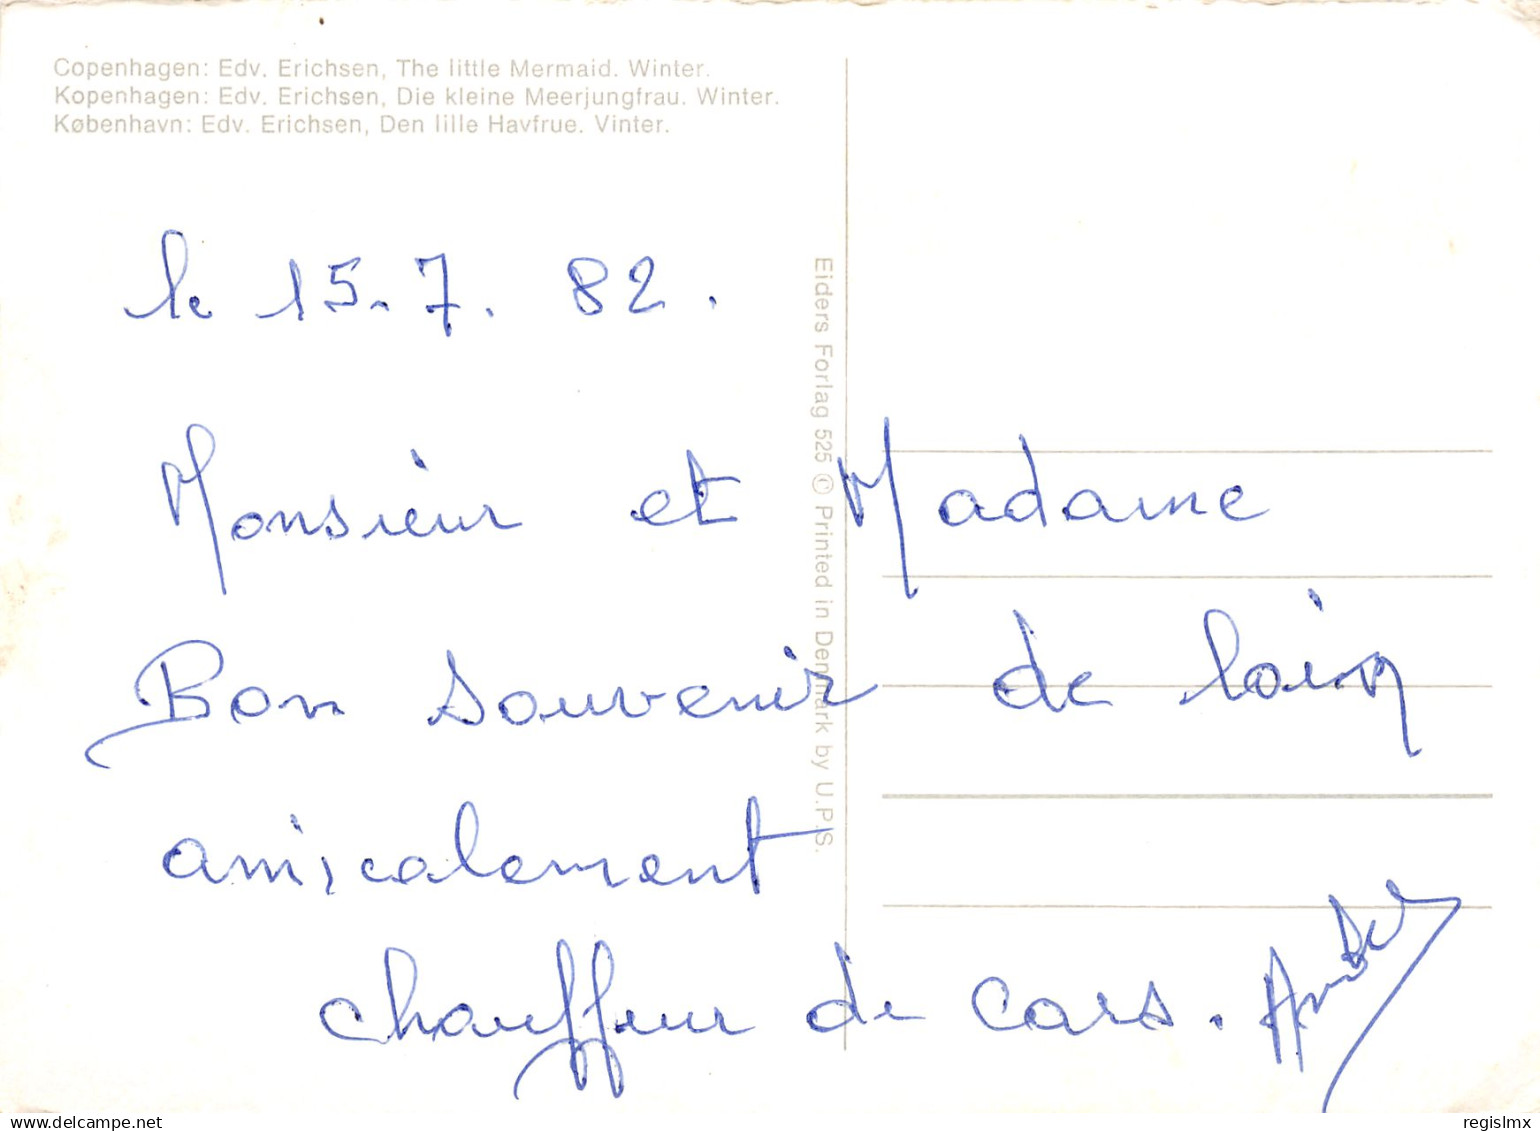 Copenhagen: Edv. Erichsen, The little Mermaid. Winter.
Kopenhagen: Edv. Erichsen, Die kleine Meerjungfrau. Winter.
København: Edv. Erichsen, Den lille Havfrue. Vinter.
le 15.7. 82.
Monsieur et Madame
Bon souvenir de loin
amicalement
chauffeur de cars. André
Eiders Forlag 525 © Printed in Denmark by U.P.S.
delcampe.net
regislmx